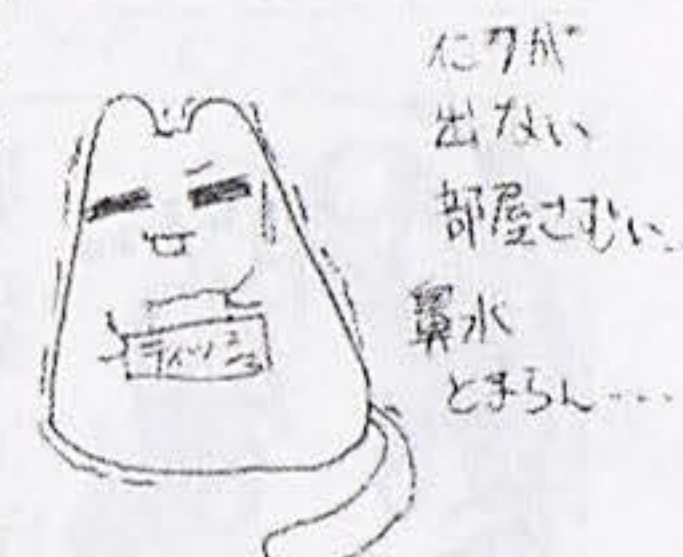 出ない
部屋さむい
鼻水
とまらん・・・・
ティッシュ